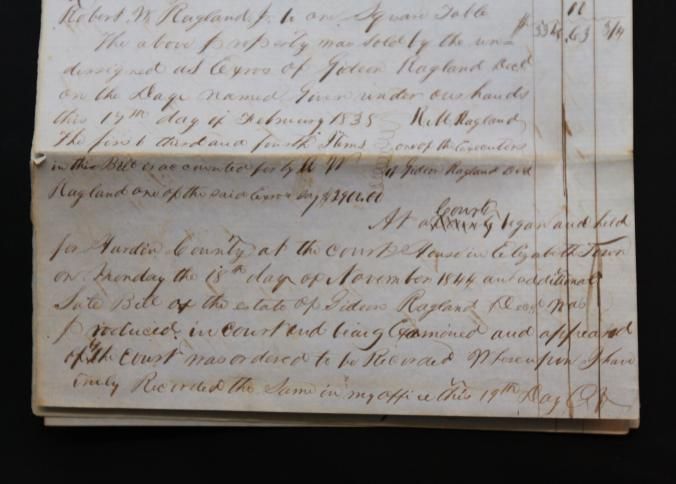 Robert W Ragland Jr to one Square Table 12
The above property was sold by the un= $ 3328 .63 3/4
dersigned as Exros of Gideon Ragland Decd
on the Day named Given under our hands
this 17th day of February 1835 R M Ragland
The first third and fourth Items one of the Executors
in this Bill is accounted for by of Gideon Ragland Decd
Ragland one of the said Exros
At a Court began and held
for Hardin County at the court House in Elizabeth Town
on Monday the 18th day of November 1844 an additional
Sale Bill of the estate of Gideon Ragland Decd was
produced in court and being Examined and approved
of by the court was ordered to be Recorded Whereupon I have
Truly Recorded the Same in my office this 19th Day Of